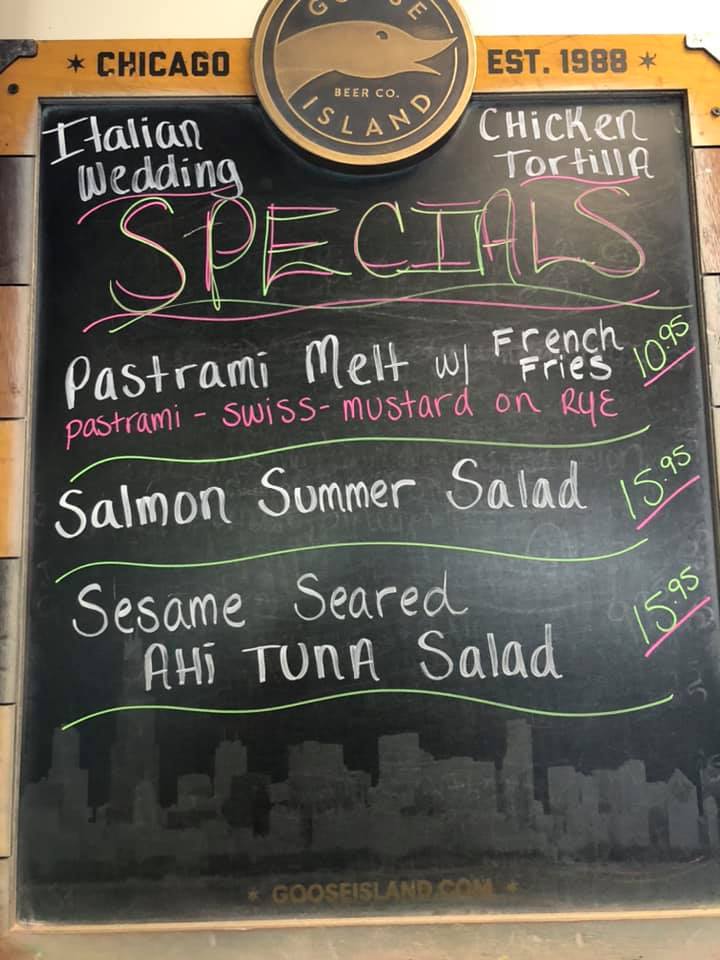 GOOSE
BEER CO.
ISLAND
CHICAGO
EST. 1988
Italian
Wedding
CHicken
TorTillA
SPECIALS
Pastrami Melt w/ French Fries 10.95
pastrami - swiss - mustard on RYE
Salmon Summer Salad 15.95
Sesame Seared
AHi TUnA Salad 15.95
GOOSEISLAND.COM